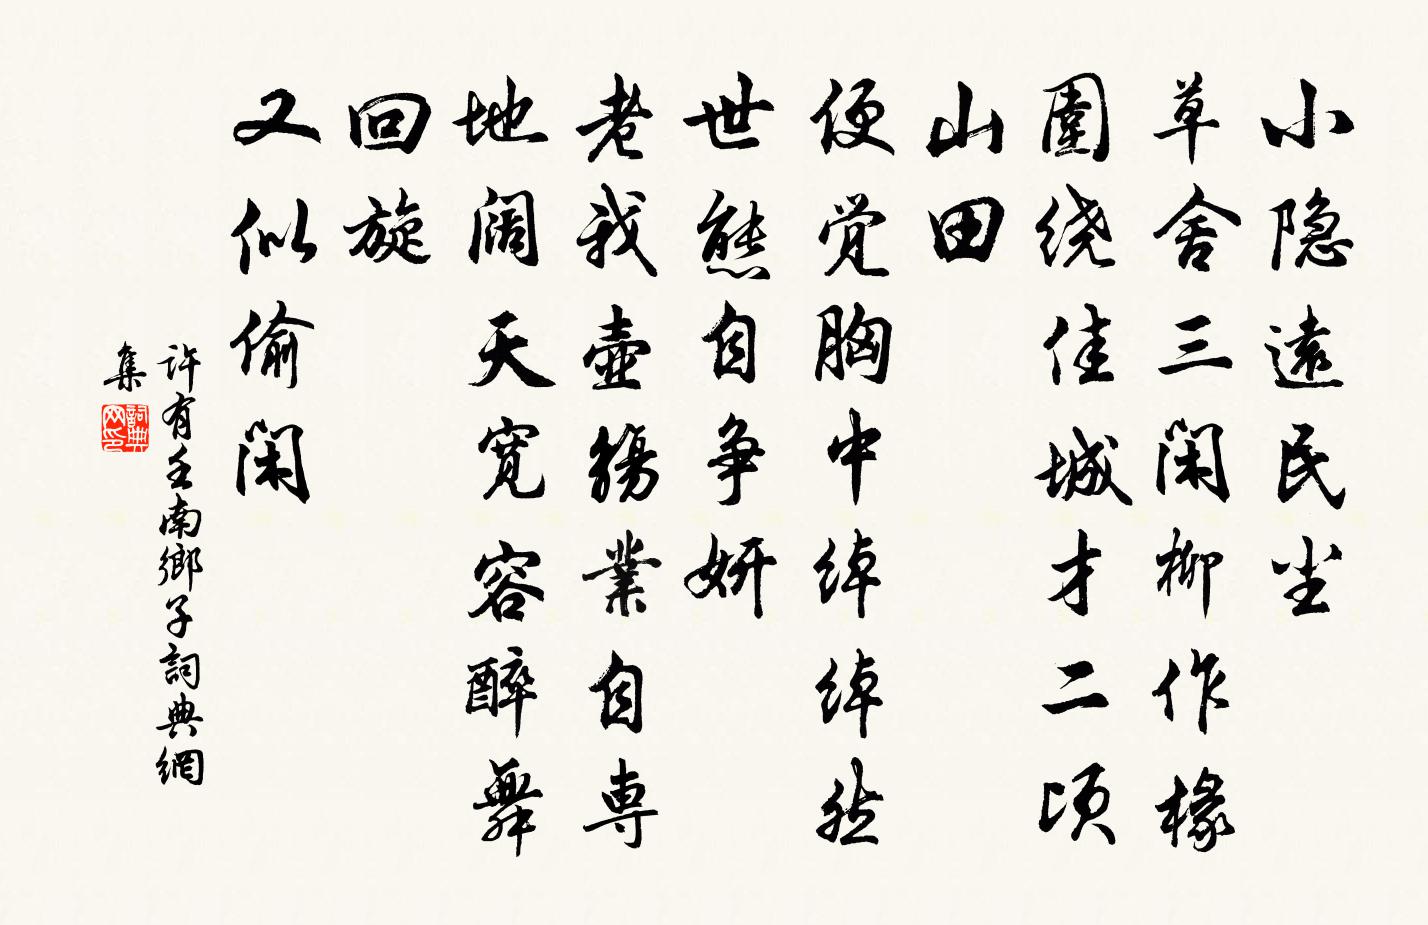 小隐遠民尘
草舍三闲柳作椽
圍绕佳城才二顷
山田
便觉胸中绰绰然
世態自争妍
老我壺觴業自専
地阔天宽容醉舞
回旋
又似偷闲
許有壬南鄉子詞典網
集
詞典网印